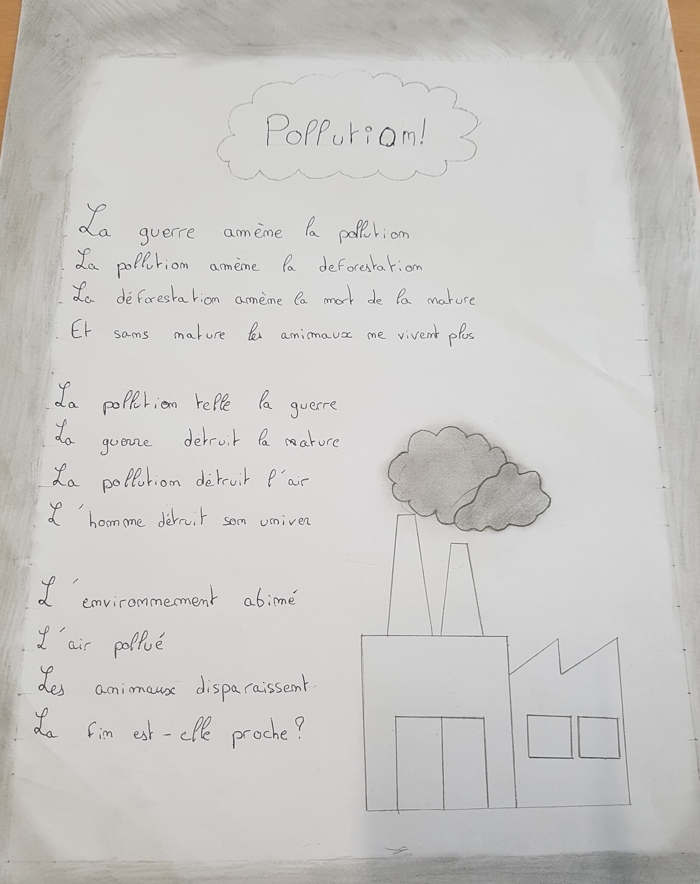 Pollution!
La guerre amène la pollution
La pollution amène la deforestation
La déforestation amène la mort de la nature
Et sans nature les animaux ne vivent plus
La pollution telle la guerre
La guerre détruit la nature
La pollution détruit l'air
L'homme détruit son univer
L'environnement abimé
L'air pollué
Les animaux disparaissent
La fin est-elle proche?